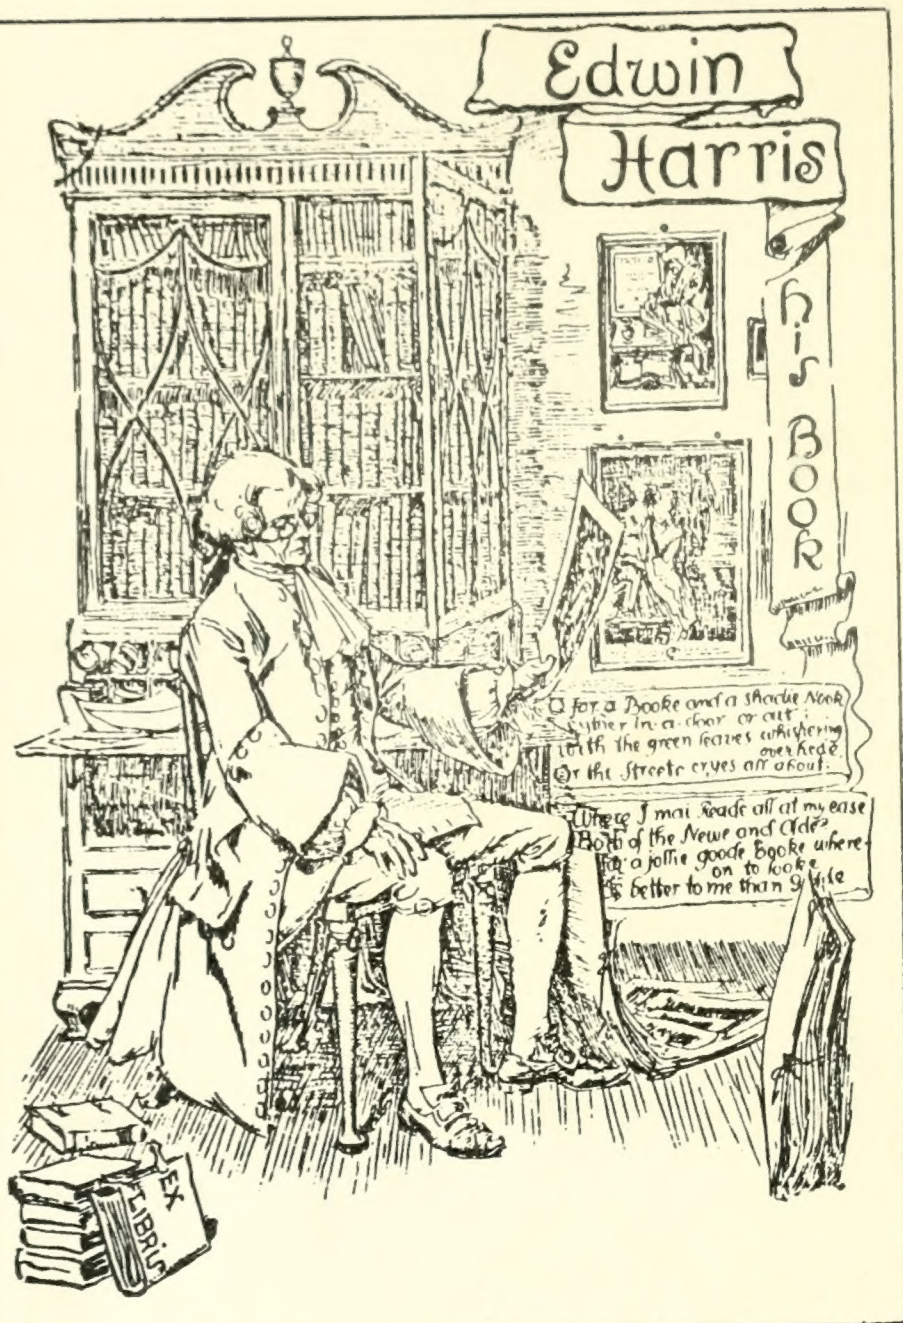 Edwin
Harris
his Book
O for a Booke and a shadie Nook
eyther in a door or out;
with the green leaves whispering
over hede
Or the Streete cryes all about.
Where I mai Reade all at my ease
Both of the Newe and Olde
For a jollie goode Booke where-
on to looke
Is better to me than
EX
LIBRIS